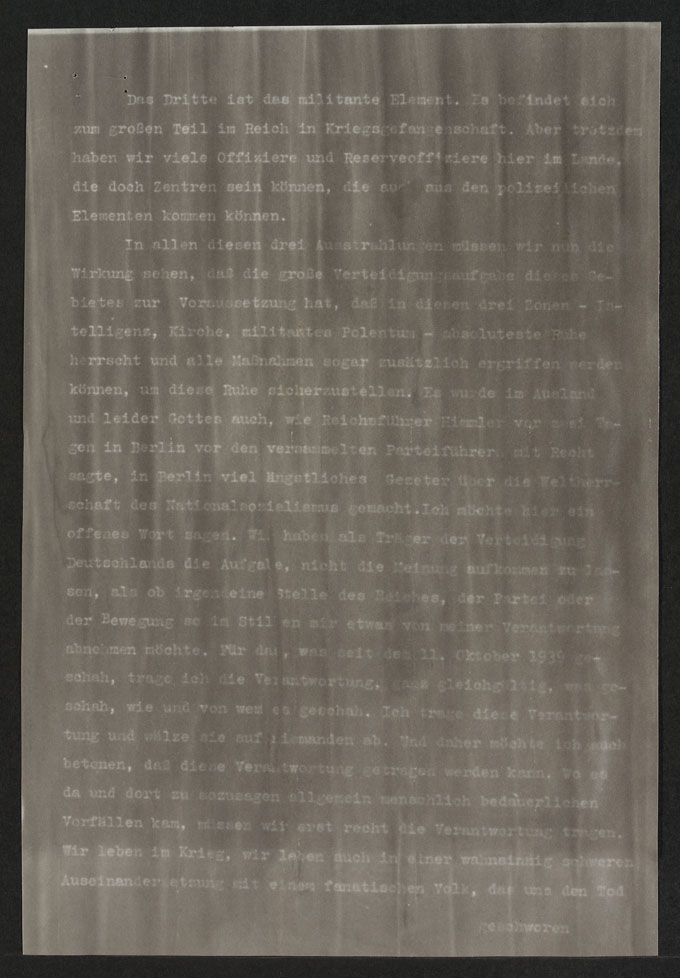 Das Dritte ist das militante Element. Es befindet sich
zum großen Teil im Reich in Kriegsgefangenschaft. Aber trotzdem
haben wir viele Offiziere und Reserveoffiziere hier im Lande,
die doch Zentren sein können, die auch aus den polizeilichen
Elementen kommen können.
In allen diesen drei Ausstrahlungen müssen wir nun die
Wirkung sehen, daß die große Verteidigungsaufgabe dieses Ge-
bietes zur Voraussetzung hat, daß in diesen drei Zonen - In-
telligenz, Kirche, militantes Polentum - absoluteste Ruhe
herrscht und alle Maßnahmen sogar zusätzlich ergriffen werden
können, um diese Ruhe sicherzustellen. Es wurde im Ausland
und leider Gottes auch, wie Reichsführer Himmler vor zwei Ta-
gen in Berlin vor den versammelten Parteiführern mit Recht
sagte, in Berlin viel ängstliches Gezeter über die Weltherr-
schaft des Nationalsozialismus gemacht.Ich möchte hier ein
offenes Wort sagen. Wir haben als Träger der Verteidigung
Deutschlands die Aufgabe, nicht die Meinung aufkommen zu las-
sen, als ob irgendeine Stelle des Reiches, der Partei oder
der Bewegung so im Stillen mir etwas von meiner Verantwortung
abnehmen möchte. Für das, was seit dem 11. Oktober 1939 ge-
schah, trage ich die Verantwortung, ganz gleichgültig, was ge-
schah, wie und von wem es geschah. Ich trage diese Verantwor-
tung und wälze sie auf niemanden ab. Und daher möchte ich auch
betonen, daß diese Verantwortung getragen werden kann. Wo es
da und dort zu sozusagen allgemein menschlich bedauerlichen
Vorfällen kam, müssen wir erst recht die Verantwortung tragen.
Wir leben im Krieg, wir leben auch in einer wahnsinnig schweren
Auseinandersetzung mit einem fanatischen Volk, das uns den Tod
geschworen